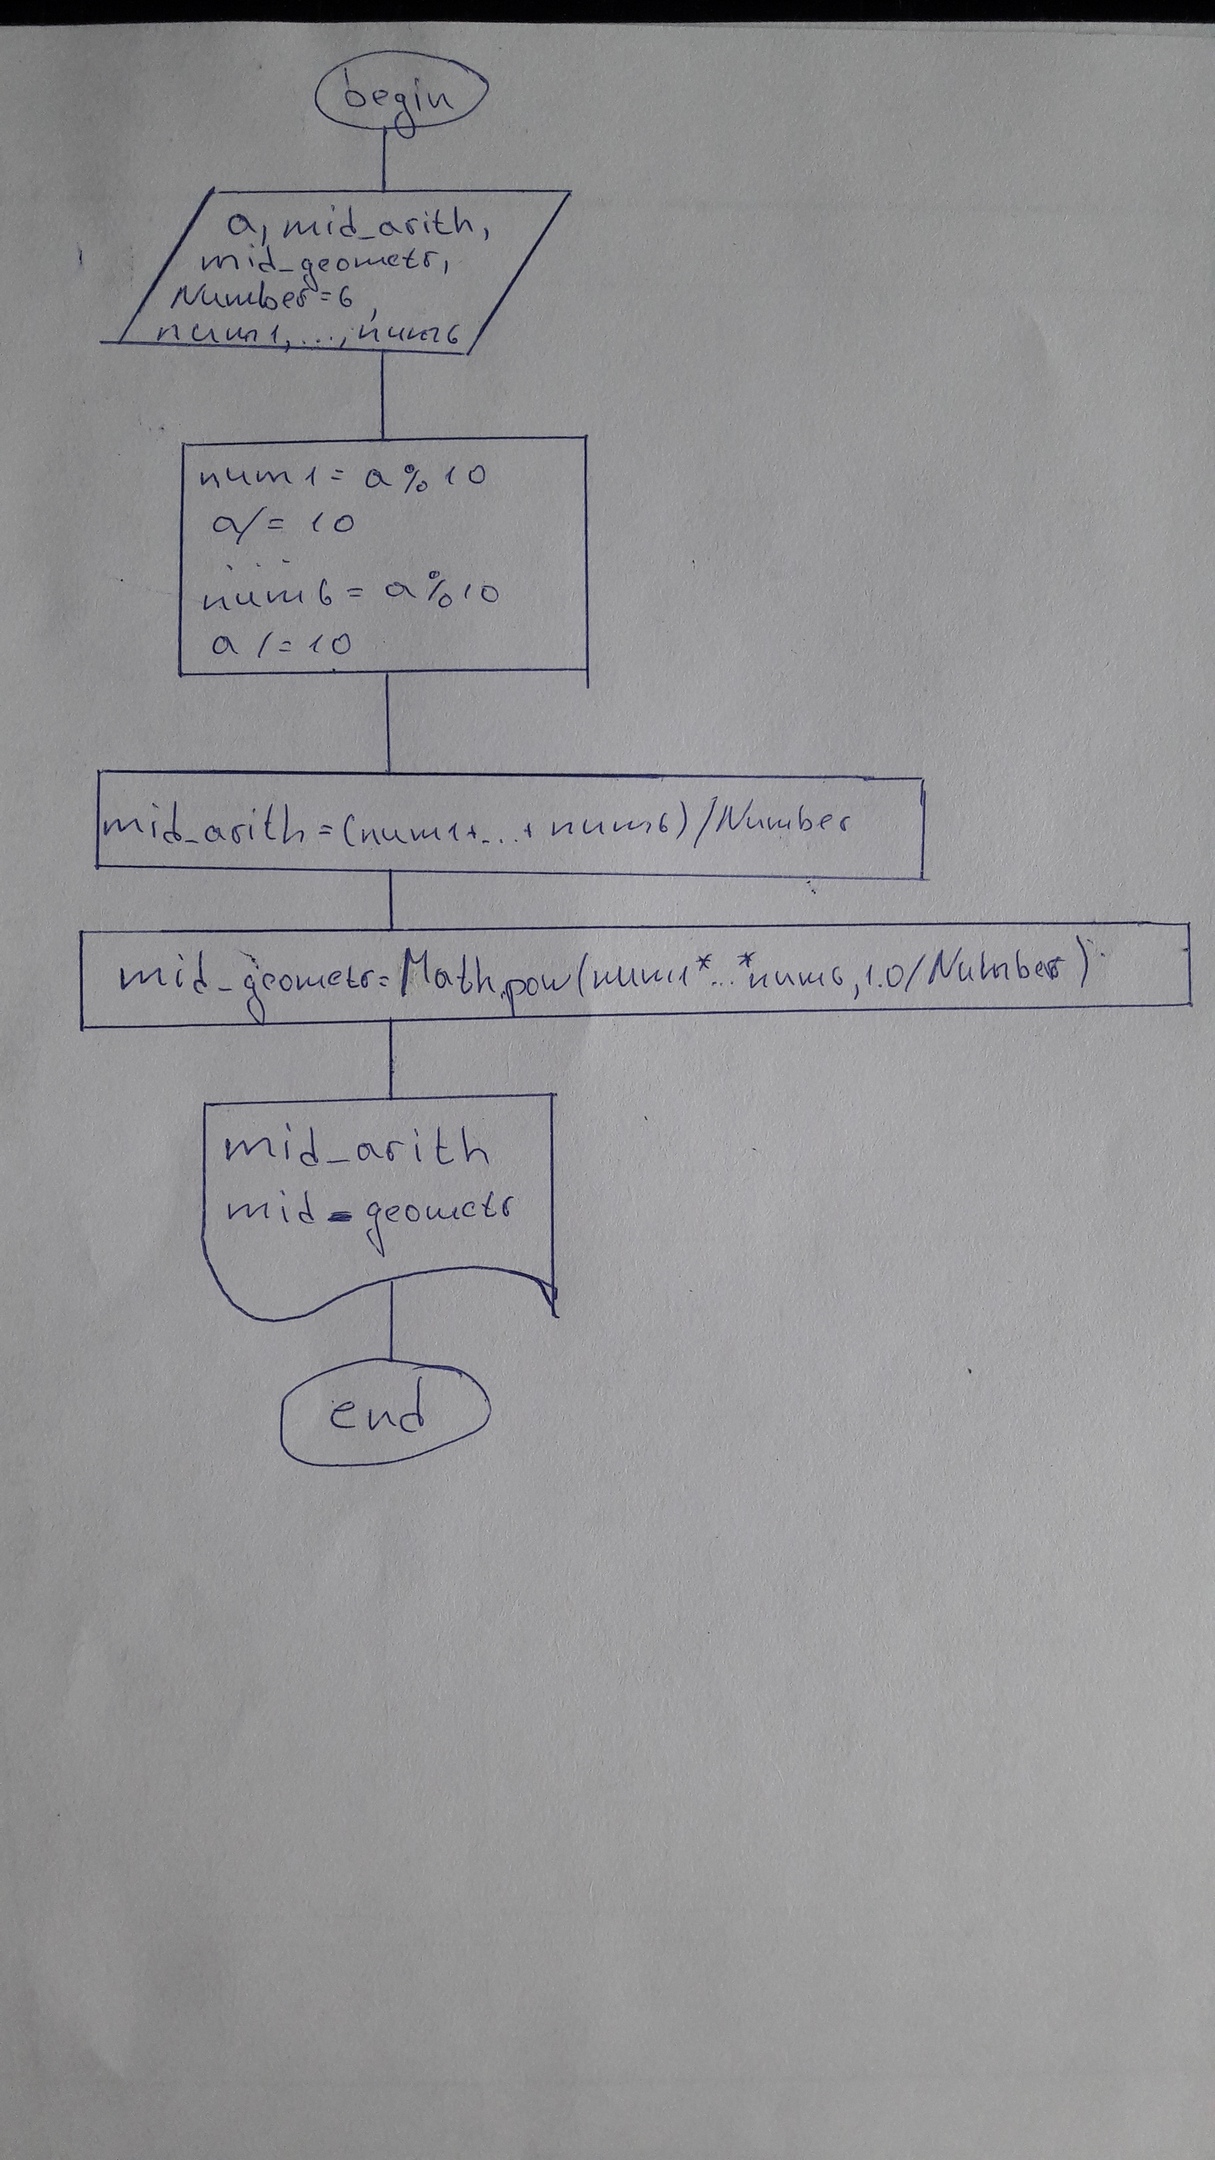 begin
a, mid_arith,
mid_geometr,
Number=6,
num1,...,num6
num1=a%10
a/=10
...
num6=a%10
a/=10
mid_arith=(num1+...+num6)/Number
mid_geometr=Math.pow(num1*...*num6,1.0/Number)
mid_arith
mid_geometr
end